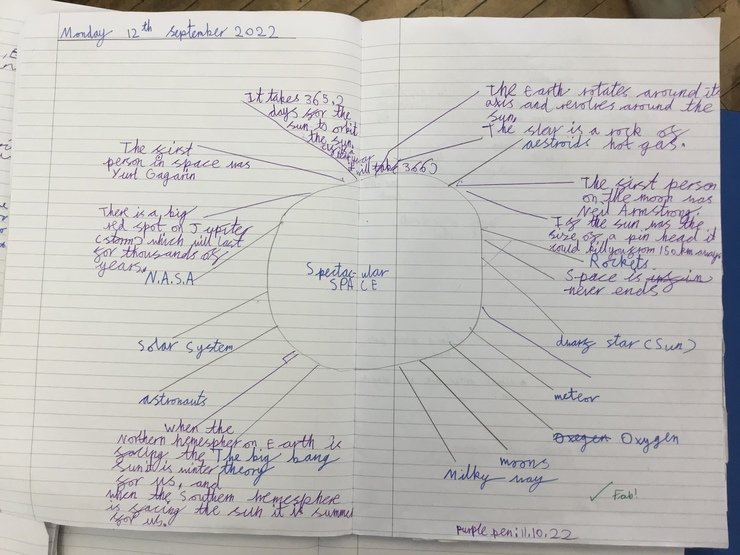 Monday 12th September 2022
It takes 365.2
days for the
sun to orbit
the sun.
will take 366)
The Earth rotates around it
axis and revolves around the
sun.
The star is a rock of
aestroids hot gas.
The first
person in space was
Yuri Gagarin
The first person
on the moon was
Neil Armstrong.
There is a big
red spot on Jupiter
(storm) which will last
for thousands of
years.
If the sun was the
size of a pin head it
could kill you from 150 km aways
Rockets
N.A.S.A
Spectacular
SPACE
Space is in
never ends
Solar System
dwarf star (Sun)
astronauts
meteor
Oxegen Oxygen
When the
Northern hemespher on Earth is
facing the The big bang
Sun it is winter theory
for us, and
when the Southern hemesphere
is facing the sun it is summer
for us.
moons
Milky way
✓ Fab!
purple pen: 11.10.22